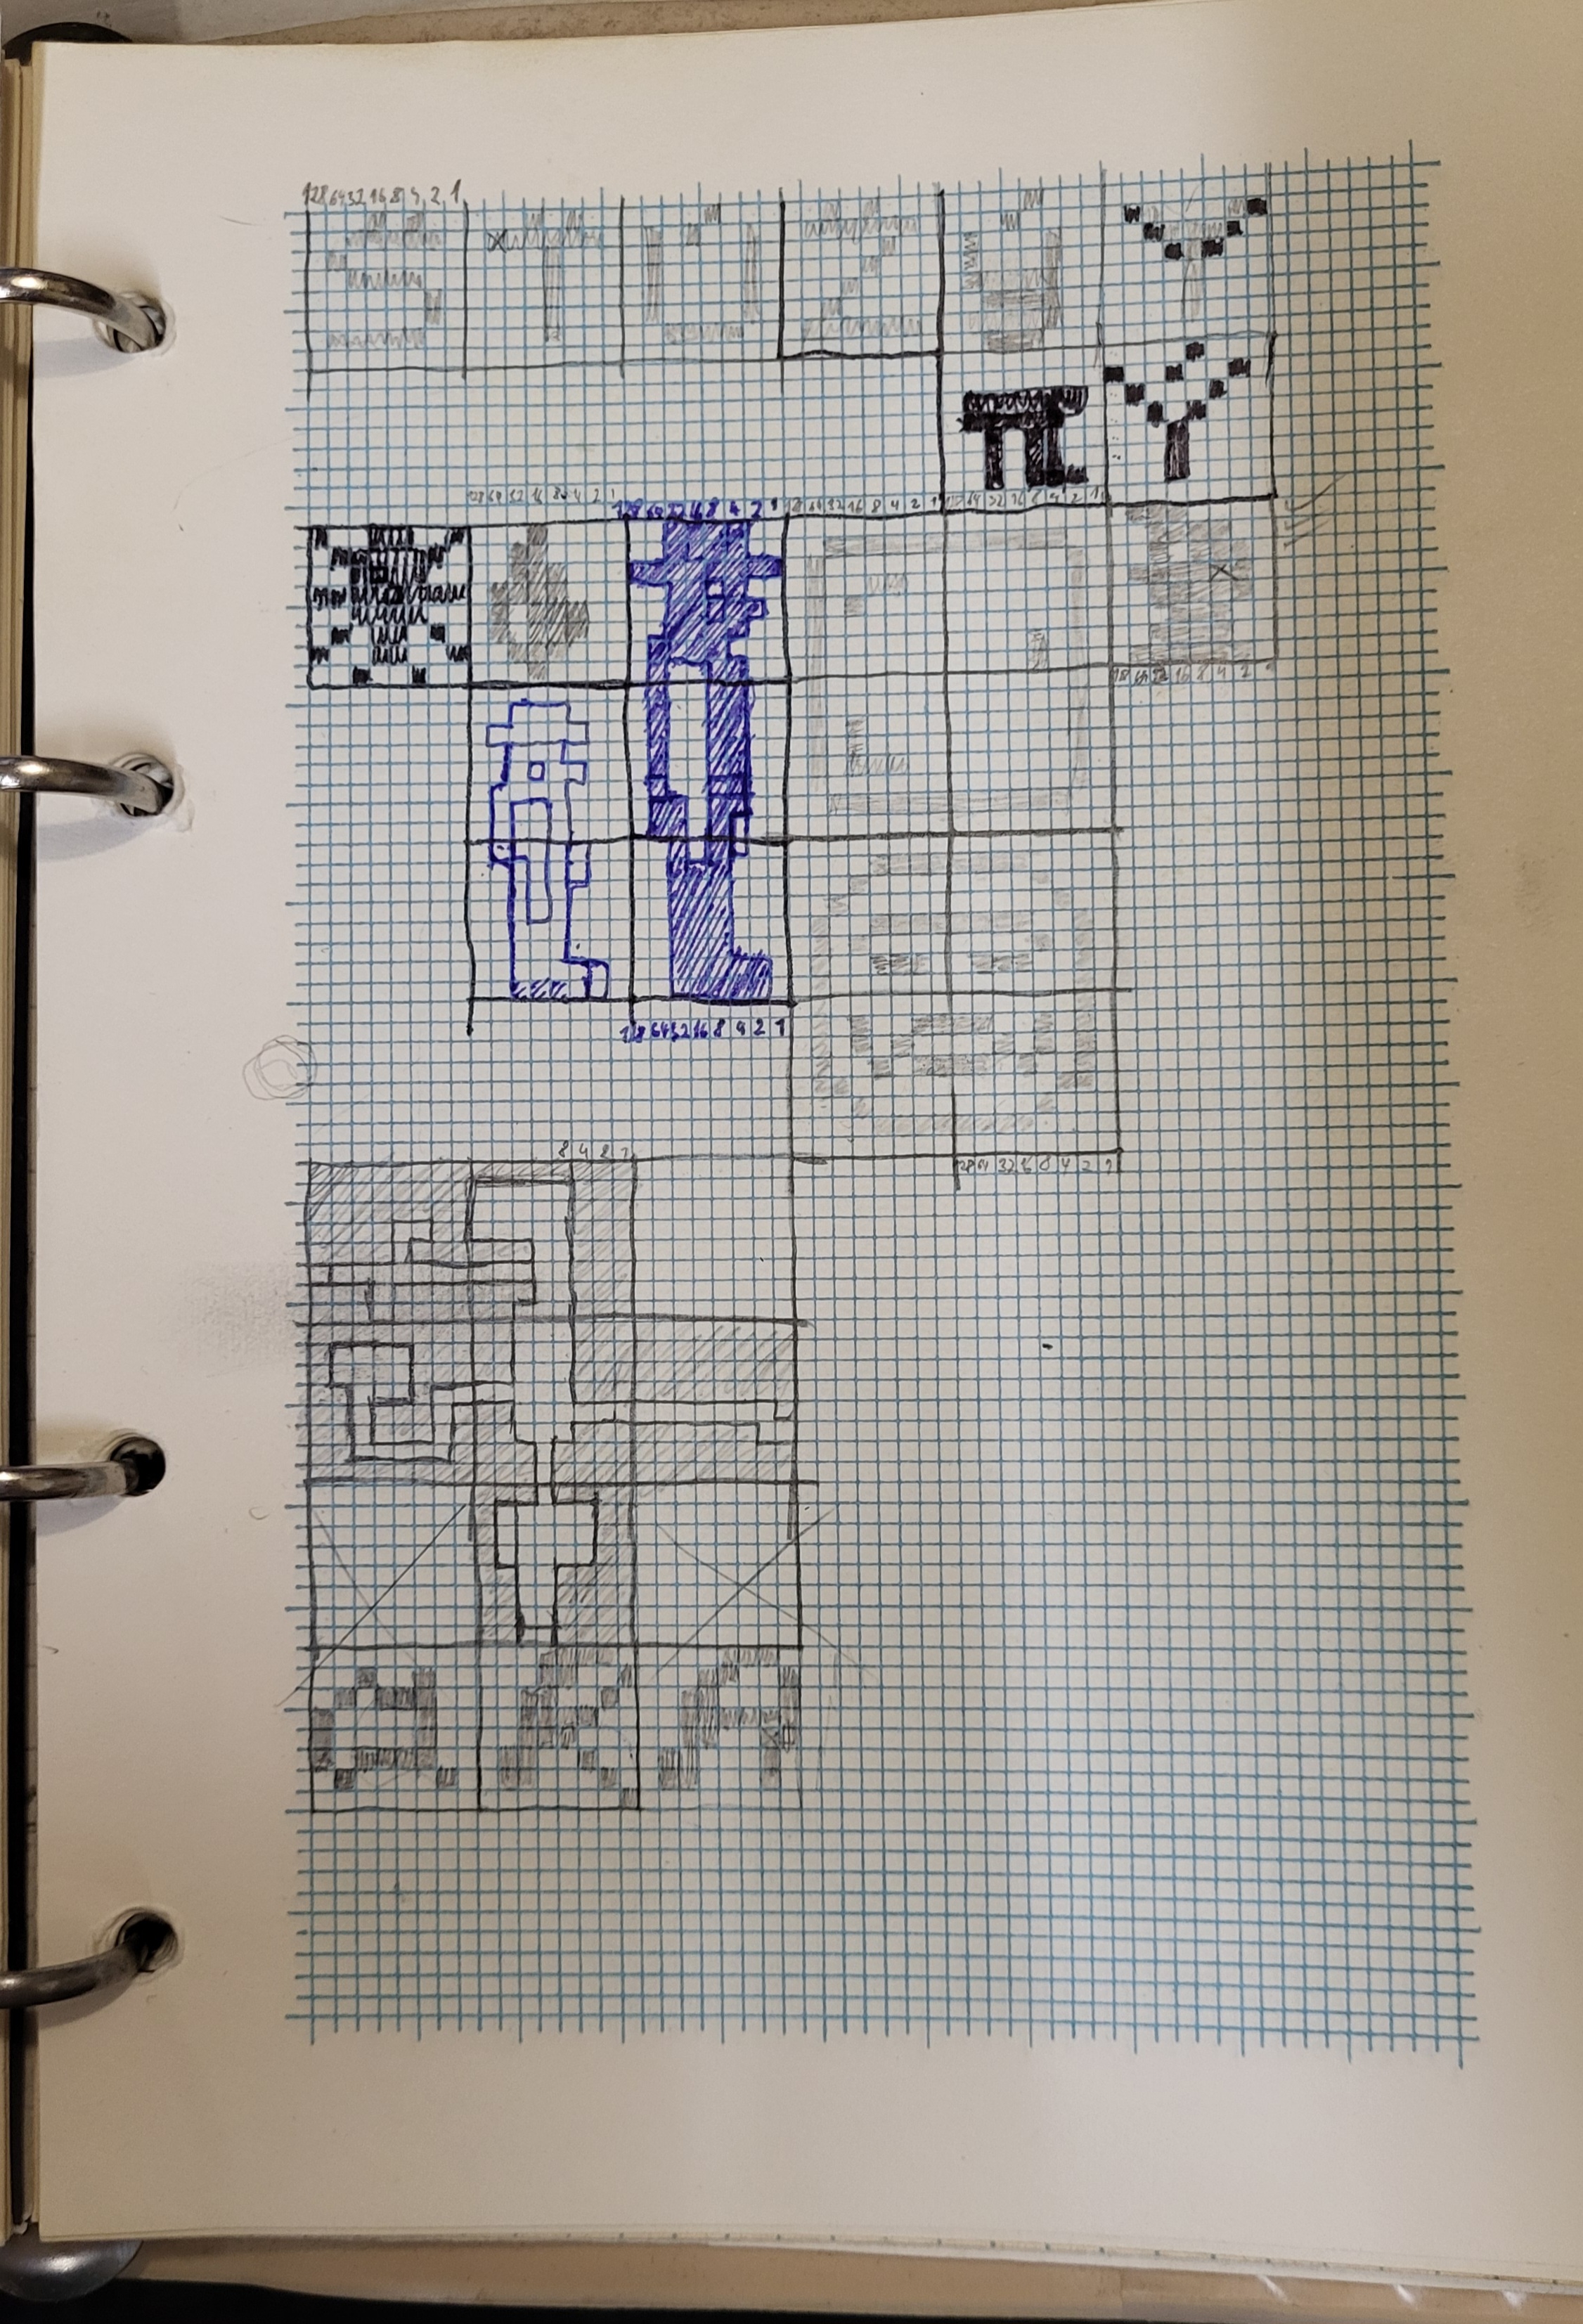 128 64 32 16 8 4 2 1
128 64 32 16 8 4 2 1 128 64 32 16 8 4 2 1 128 64 32 16 8 4 2 1 128 64 32 16 8 4 2 1
128 64 32 16 8 4 2
128 64 32 16 8 4 2 1
8 4 2 1
128 64 32 16 8 4 2 1